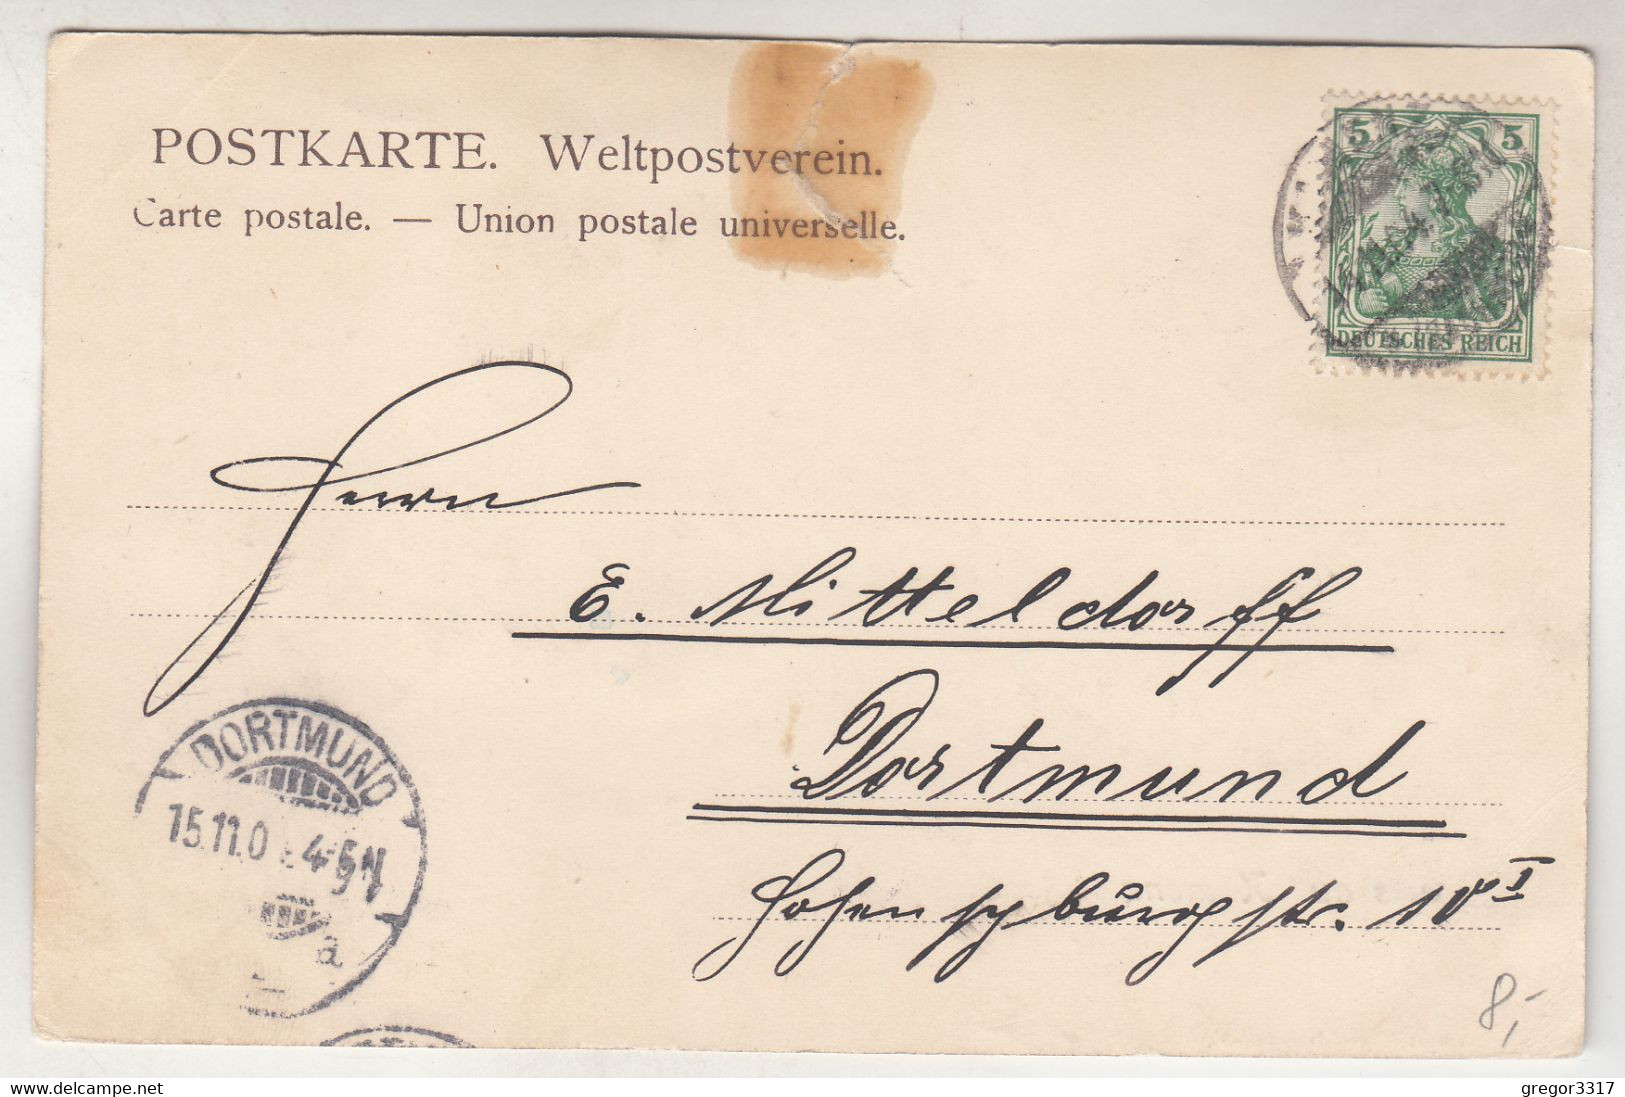 POSTKARTE. Weltpostverein.
Carte postale. — Union postale universelle.
5 5
DEUTSCHES REICH
Herrn
E. Mitteldorff
Dortmund
Hohensyburgstr. 10 I
DORTMUND
15.11.0 4-5N
a
8,-
delcampe.net
gregor3317